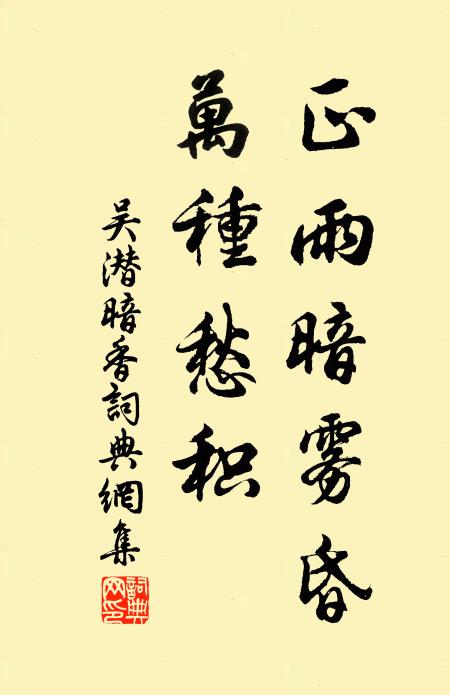 正雨暗雾昏
萬種愁积
吴潜暗香詞典網集
詞典网印